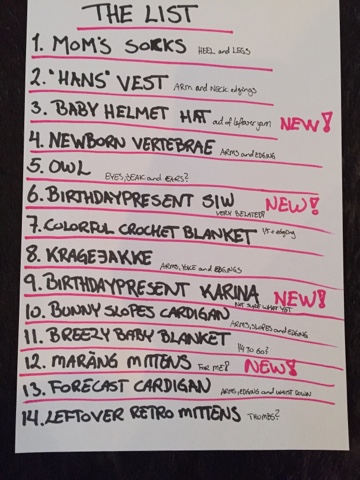 THE LIST
1. MOM'S SOCKS HEEL and LEGS
2. "HANS" VEST ARM and NECK edgings
3. BABY HELMET HAT out of leftover yarn NEW!
4. NEWBORN VERTEBRAE ARMS and EDGING
5. OWL EYES, BEAK and EARS?
6. BIRTHDAYPRESENT SIW VERY BELATED! NEW!
7. COLORFUL CROCHET BLANKET edging
8. KRAGEJAKKE ARMS, YOKE and EDGINGS
9. BIRTHDAYPRESENT KARINA NOT SURE WHAT YET NEW!
10. BUNNY SLOPES CARDIGAN ARMS, SLOPES and EDGING
11. BREEZY BABY BLANKET 14 TO GO?
12. MARÄNG MITTENS FOR ME? NEW!
13. FORECAST CARDIGAN ARMS, EDGING and WAIST DOWN
14. LEFTOVER RETRO MITTENS THUMBS?